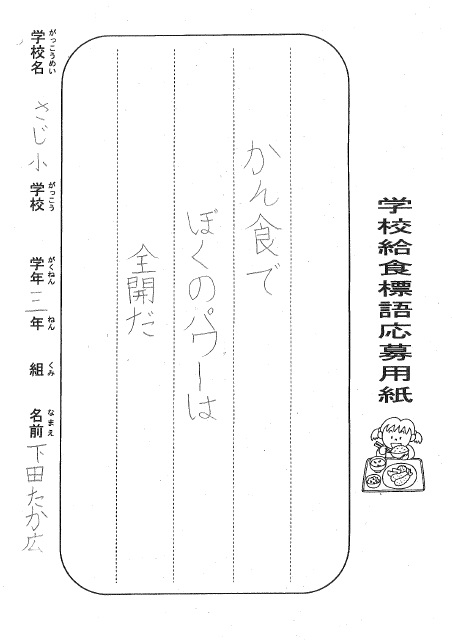 学校給食標語応募用紙
かん食で
ぼくのパワーは
全開だ
学校名 さじ小 学校 学年 三年 組 名前 下田たか広
がっこうめい がっこう がくねん ねん くみ なまえ